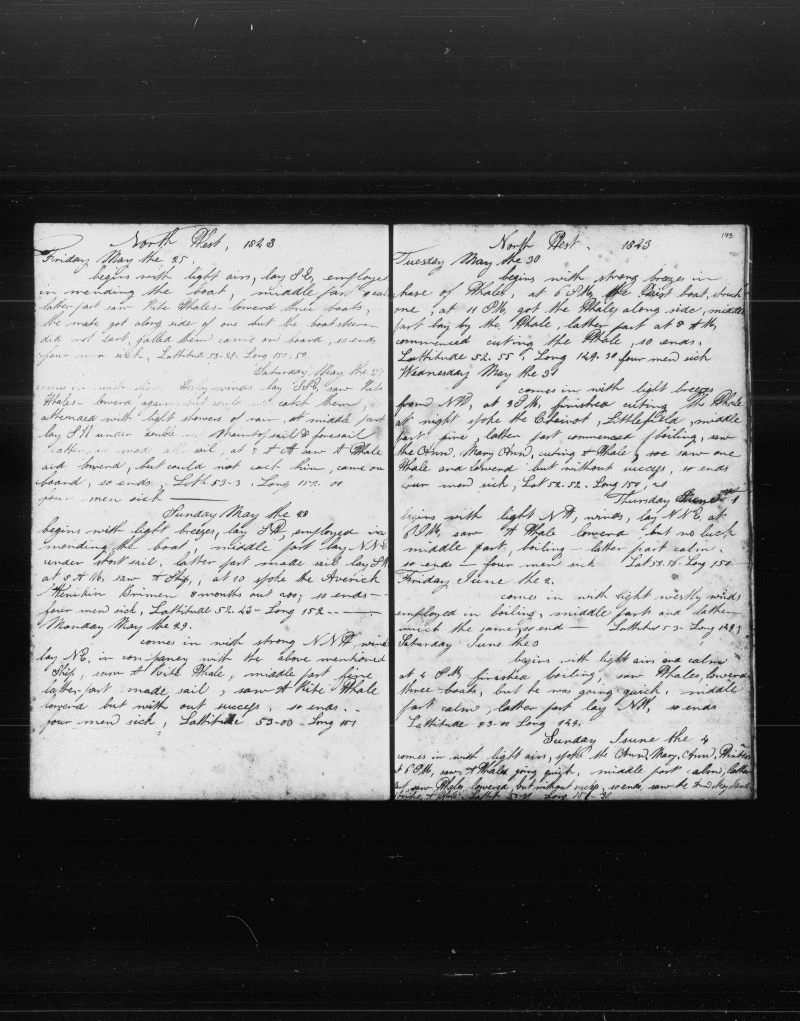 North West, 1843
Friday May the 25.
begins with light airs, lay SE, employed
in mending the boat, middle part
latter part saw Rite Whales lowerd three boats,
the mate got along side of one but the boatsteerer
did not dart, galled them came on board, so ends,
four men sick. Lattitud 53-21. Long 151,50
Saturday May the 27
comes in with winds lay SSE, saw Rite
Whales lowerd again but could not catch them,
attended with light showers of rain, at middle part
lay SW under Maintopsail & foresail
latter made all sail, at 7 A M saw A Whale
and lowerd, but could not catch him, came on
board, so ends, Long 152.00
four men sick
Sunday May the 28
begins with light breezes, lay employed in
mending the boat middle part lay NNE
under short sail. latter part made sail lay
at 5 A M, saw A Ship, at 10 spoke the Averick
8 months out so ends
four men sick, Lattitude 52-23- Long 152
Monday May the 29.
comes in with strong NNW, wind
lay NE, in company with the above mentioned
Ship, saw A Rite Whale, middle part fine
latter part made sail, saw A Rite Whale
lowerd but with out success, so ends.
four men sick, Lattitude 53-03 Long 151
193
North West. 1843
Tuesday May the 30
begins with strong breeze in
chase of Whales, at 6 P M, the boat, struck
one, at 11 P M, got the Whale along side, middle
part lay by the Whale, latter part at 8 A M,
commenced cuting the Whale, so ends.
Lattitude 52.55 Long 149.30 four men sick
Wednesday May the 31
comes in with light breezes
from NW, at 3 P M, finished cuting the Whale
at night spoke the Clairot, Littlefield, middle
part fine, latter part commenced boiling, saw
the Ann. Mary Ann, cuting A Whale, soe saw one
Whale and lowerd but without success, so ends
four men sick, Lat 52-52-Long 150,20
Thursday June 1
begins with light NW, winds, lay NNE, at
6 P M, saw A Whale lowerd but no luck
middle part, boiling latter part calm.
so ends four men sick Lat 52.56 Long 150
Friday June the 2.
comes in with light winds
employed in boiling, middle part and latter
much the same, so ends Lattitud 53- Long 149
Saturday June the 3
begins with light airs and calm
at 4 P M, finished boiling, saw Whales, lowerd
three boats, but he was going quick, middle
part calm, latter part lay NW, so ends
Lattitude 53-00 Long 149.
Sunday June the 4
comes in with light airs, spoke the Ann, Mary, Ann,
at 6 P M, saw A Whale going quick, middle part calm, latter
saw Whales lowered, but without success, so ends, saw the Ann Mary Ann